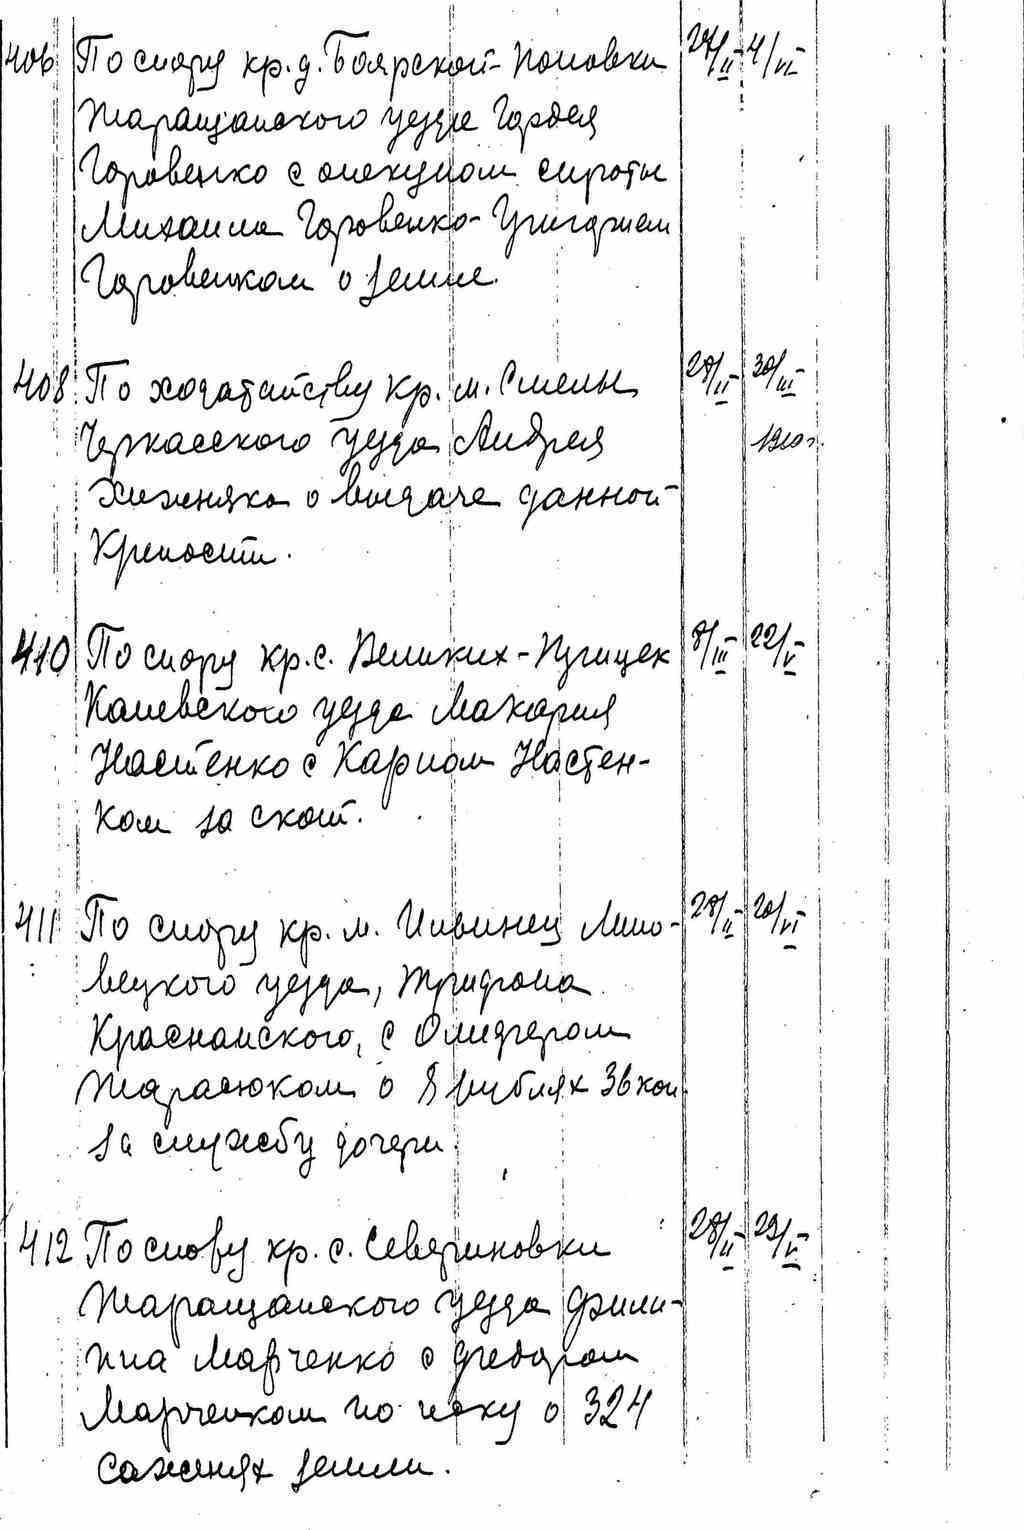 406 По спору кр. д. Боярской-Поповки 28/II 4/VI
Таращанского уезда Гордея
Горовенко с опекуном сироты
Михаила Горовенко-
Горовенком о земле.
408 По ходатайству кр. м. Смелы 28/II 30/III
Черкасского уезда Андрея 1910 г.
Хижняка о выдаче данной
крепости.
410 По спору кр. с. Великих-Пугицек 8/III 22/V
Каневского уезда Макария
Настенко с Карпом Настен-
ком за скот.
411 По спору кр. м. Ильинец Липо- 28/II 20/VI
вецкого уезда, Трифона
Краснанского, с
Тарасюком о 8 рублях 36 коп.
за службу дочери.
412 По спору кр. с. Севериновки 28/II 29/V
Таращанского уезда Фили-
ппа Марченко с Федором
Марченком по иску о 324
саженях земли.